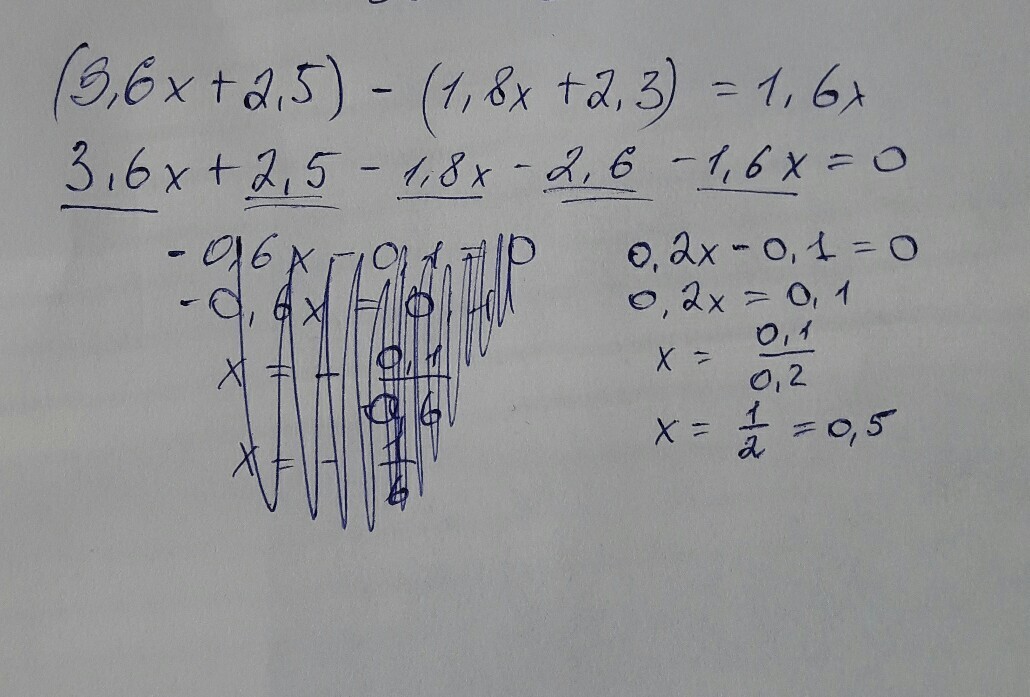 (3,6x + 2,5) - (1,8x + 2,3) = 1,6x
3,6x + 2,5 - 1,8x - 2,6 - 1,6x = 0
-0,6x - 0,1 = 0
-0,6x = 0,1
x = - 0,1/0,6
x = - 1/6
0,2x - 0,1 = 0
0,2x = 0,1
x = 0,1/0,2
x = 1/2 = 0,5